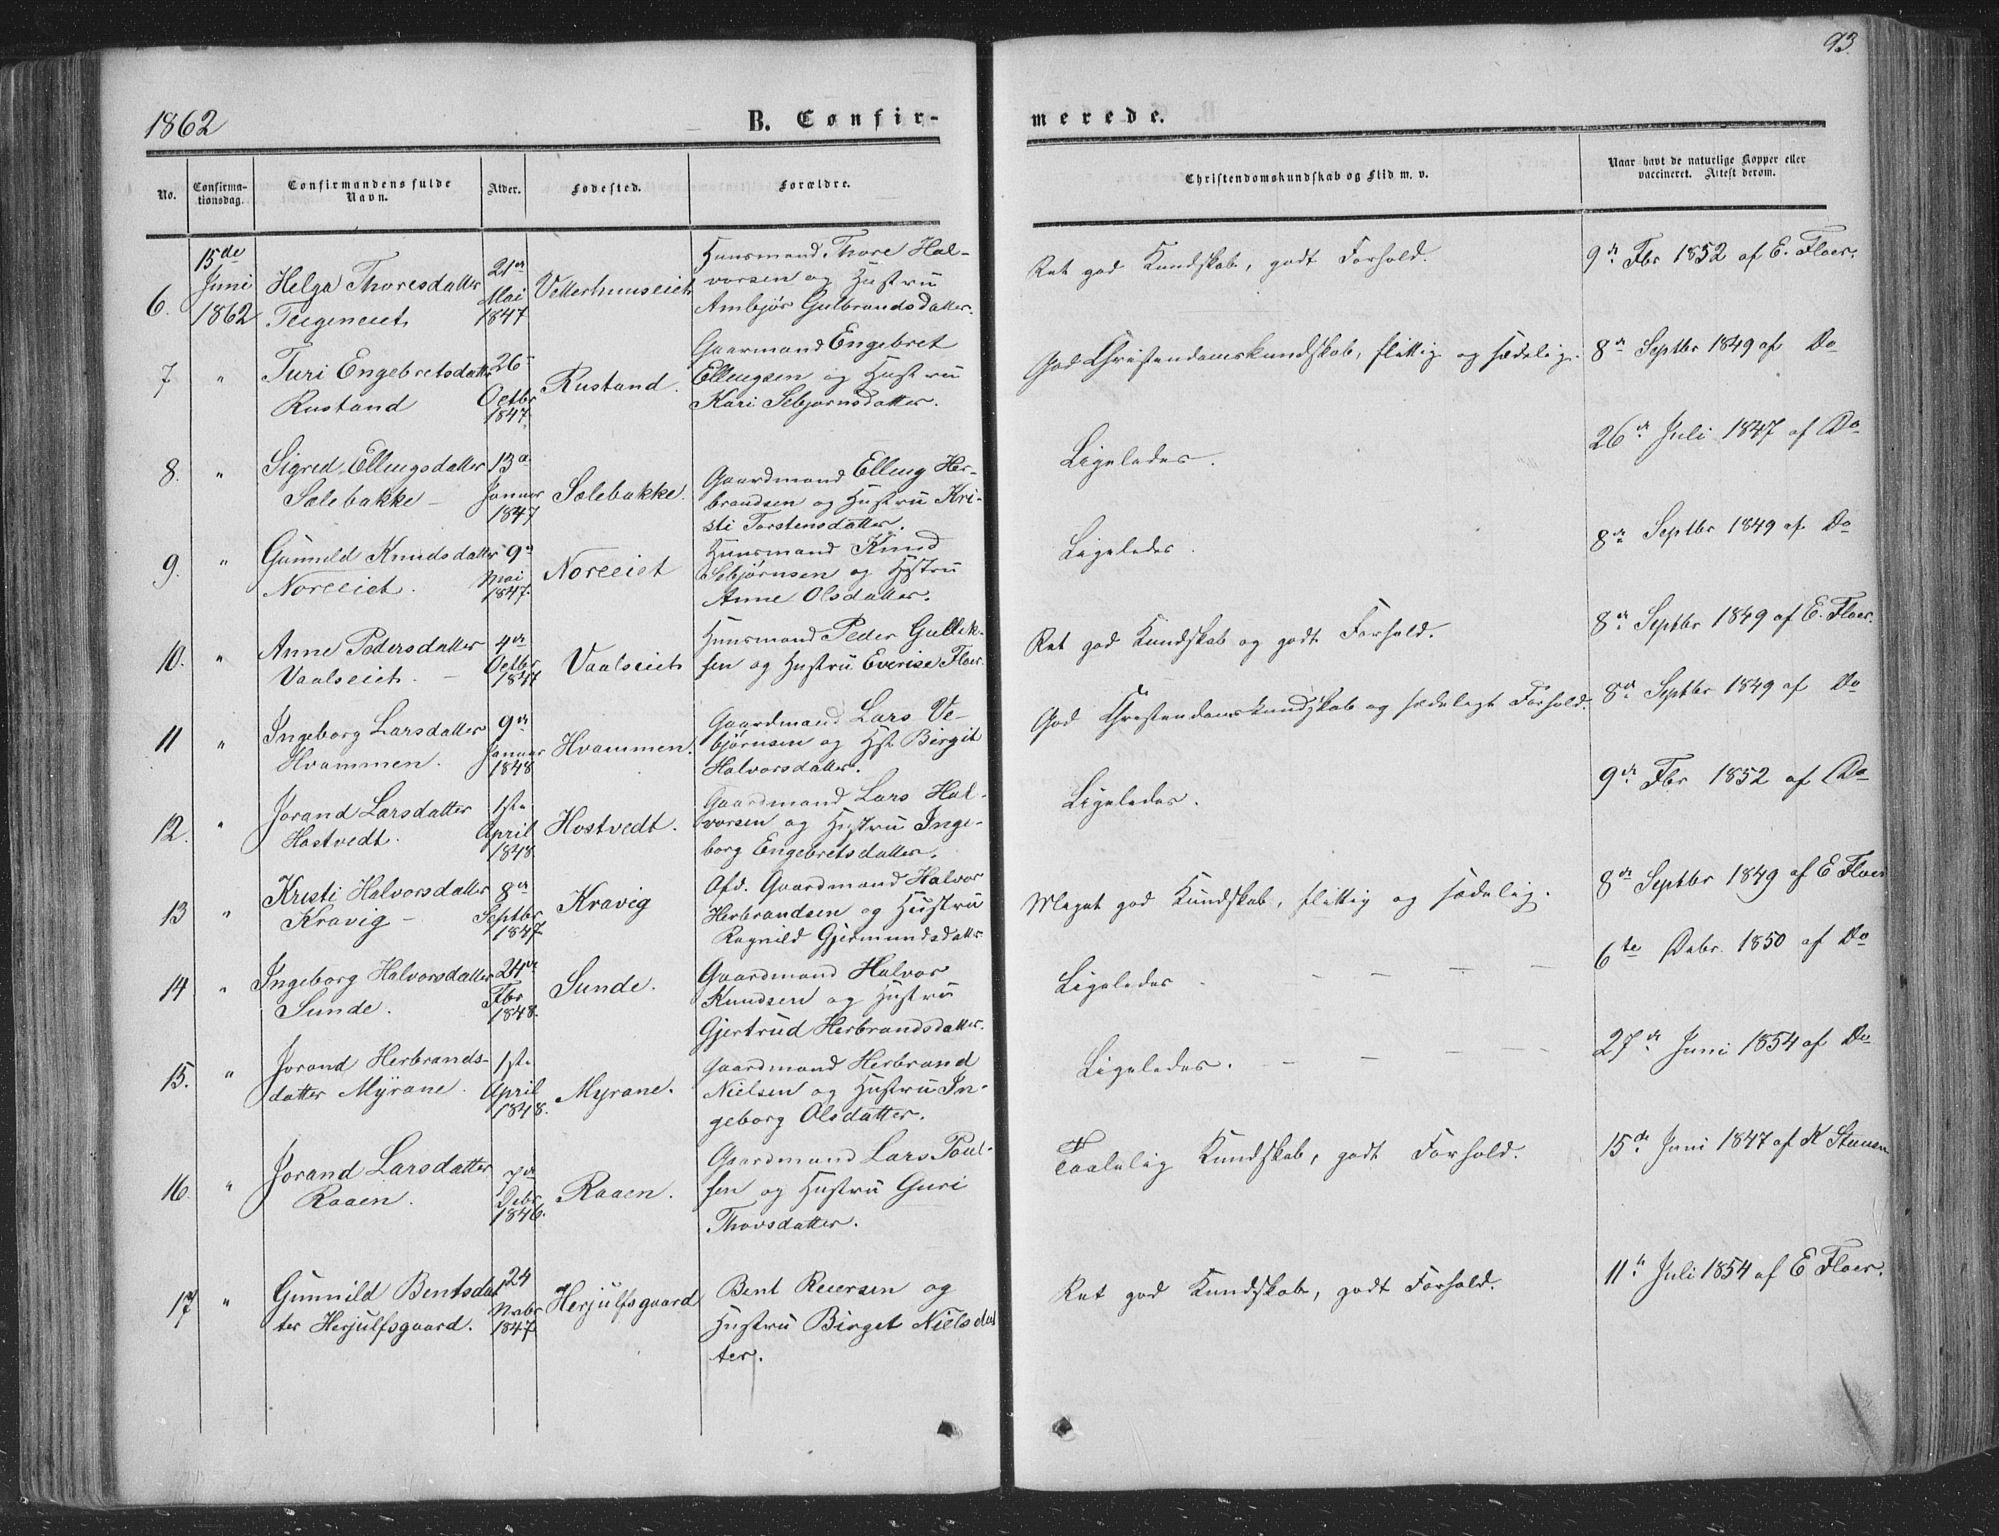 93.
1862
B. Confir-
merede.
No.
Confirma-
tionsdag.
Confirmandens fulde
Navn.
Alder.
Fødested.
Forældre.
Christendomskundskab og Flid m. v.
Naar havt de naturlige Kopper eller
vaccineret. Attest derom.
6.
15de
Juni
1862
Helga Thoresdatter
Teigeneiet
21de
Mai
1847
Vetterhuuseiet
Huusmand Thore Hal-
vorsen og Hustru
Ambjør Gulbrandsdatter.
Ret god Kundskab, godt Forhold.
9de Fbr 1852 af E. Floer.
7
"
Turi Engebretsdatter
Rustand
26
Octbr
1847.
Rustand.
Gaarmand Engebret
Ellengsen og Hustru
Kari Sebjørnsdatter.
God Christendomskundskab, flittig og sædelig.
8de Septbr 1849 af Do
8.
"
Sigred Ellingsdatter
Sælebakke –
13de
Januar
1847
Sælebakke.
Gaardmand Elling Her-
brandsen og Hustru Kri-
sti Torstensdatter.
Ligeledes.
26de Juli 1847 af Do
9.
"
Gunnild Knudsdatter
Noreeiet.
9de
Mai
1847.
Noreeiet
Huusmand Knud
Sebjørnsen og Hstru
Anne Olsdatter.
Ligeledes.
8de Septbr 1849 af Do
10.
"
Anne Pedersdatter
Vaalseiet. –
4de
Octbr
1847
Vaalseiet
Huusmand Peder Gullik-
sen og Hustru Everise Floer.
Ret god Kundskab og godt Forhold.
8de Septbr 1849 af E. Floer.
11
"
Ingeborg Larsdatter
Hvammen.
9de
Januar
1848
Hvammen.
Gaardmand Lars Ve-
bjørnsen og Hst. Birgit
Halvorsdatter.
God Christendomskundskab og sædeligt Forhold.
8de Septbr 1849 af Do
12.
"
Jorand Larsdatter
Hostvedt.
1ste
April
1848
Hostvedt.
Gaardmand Lars Hal-
vorsen og Hustru Inge-
borg Engebretsdatter.
Ligeledes.
9de Fbr 1852 af Do
13
"
Kristi Halvorsdatter
Kravig –
8de
Septbr
1847.
Kravig
Afd. Gaardmand Halvor
Herbrandsen og Hustru
Ragnild Gjermundsdatter
Meget god Kundskab, flittig og sædelig.
8de Septbr 1849 af E Floer
14
"
Ingeborg Halvorsdatter
Sunde.
24de
Fbr
1848.
Sunde.
Gaardmand Halvor
Knudsen og Hustru
Gjertrud Herbrandsdatter.
Ligeledes – – – –
6te Debr. 1850 af Do
15.
"
Jorand Herbrands-
datter Myrane.
1ste
April
1848.
Myrane.
Gaardmand Herbrand
Nielsen og Hustru In-
geborg Olsdatter.
Ligeledes. – – – –
27de Juni 1854 af Do
16.
"
Jorand Larsdatter
Raaen.
7de
Debr
1846.
Raaen.
Gaardmand Lars Poul-
sen og Hustru Guri
Thovsdatter.
Taalelig Kundskab, godt Forhold.
15de Juni 1847 af K Steneen
17
"
Gunnild Bentsdat
ter Herjulfsgaard.
24
Nvbr
1847.
Herjulfsgaard
Bent Reiersen og
Hustru Birget Nielsdat
ter.
Ret god Kundskab, godt Forhold.
11te Juli 1854 af E Floer.